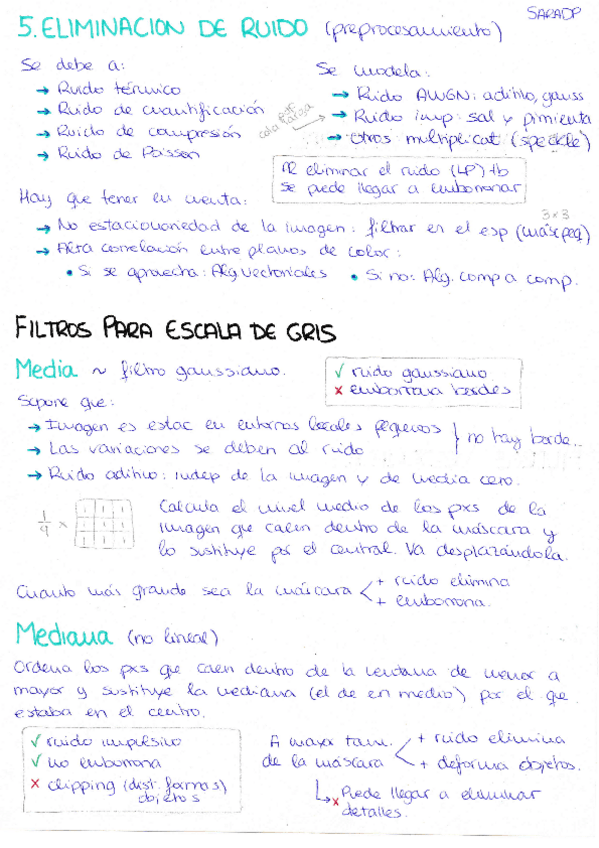 SARADP
5. ELIMINACION DE RUIDO (preprocesamiento)
Se debe a:
→ Ruido térmico
→ Ruido de cuantificación
→ Ruido de compresión
→ Ruido de Poisson
Se modela:
→ Ruido AWGN: aditivo, gauss
→ Ruido imp: sal y pimienta
→ Otros: multiplicat (speckle)
cola larga
Al eliminar el ruido (LP) tb
se puede llegar a emborronar
Hay que tener en cuenta:
→ No estacionariedad de la imagen: filtrar en el esp (másc peq)
3x3
→ Alta correlación entre planos de color:
• Si se aprovecha: Alg vectoriales • Si no: Alg. comp a comp.
FILTROS PARA ESCALA DE GRIS
Media ~ filtro gaussiano.
✓ ruido gaussiano
✗ emborrona bordes
Supone que:
→ Imagen es estac en entornos locales pequeños
→ Las variaciones se deben al ruido
} no hay borde...
→ Ruido aditivo: indep de la imagen y de media cero.
1/9 ×
1 1 1
1 1 1
1 1 1
Calcula el nivel medio de los pxs de la
imagen que caen dentro de la máscara y
lo sustituye por el central. Va desplazándola.
Cuanto más grande sea la máscara < + ruido elimina
+ emborrona.
Mediana (no lineal)
Ordena los pxs que caen dentro de la ventana de menor a
mayor y sustituye la mediana (el de en medio) por el que
estaba en el centro.
✓ ruido impulsivo
✓ no emborrona
✗ clipping (dist. formas)
objetos
A mayor tam. < + ruido elimina
de la máscara + deforma objetos.
↳ ✗ Puede llegar a eliminar
detalles.